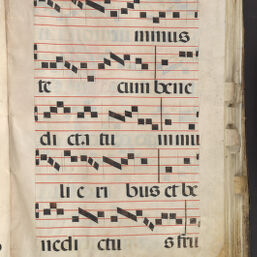 minus
te cum bene
di cta tu in mu
li e ri bus et be
nedi ctu s fru